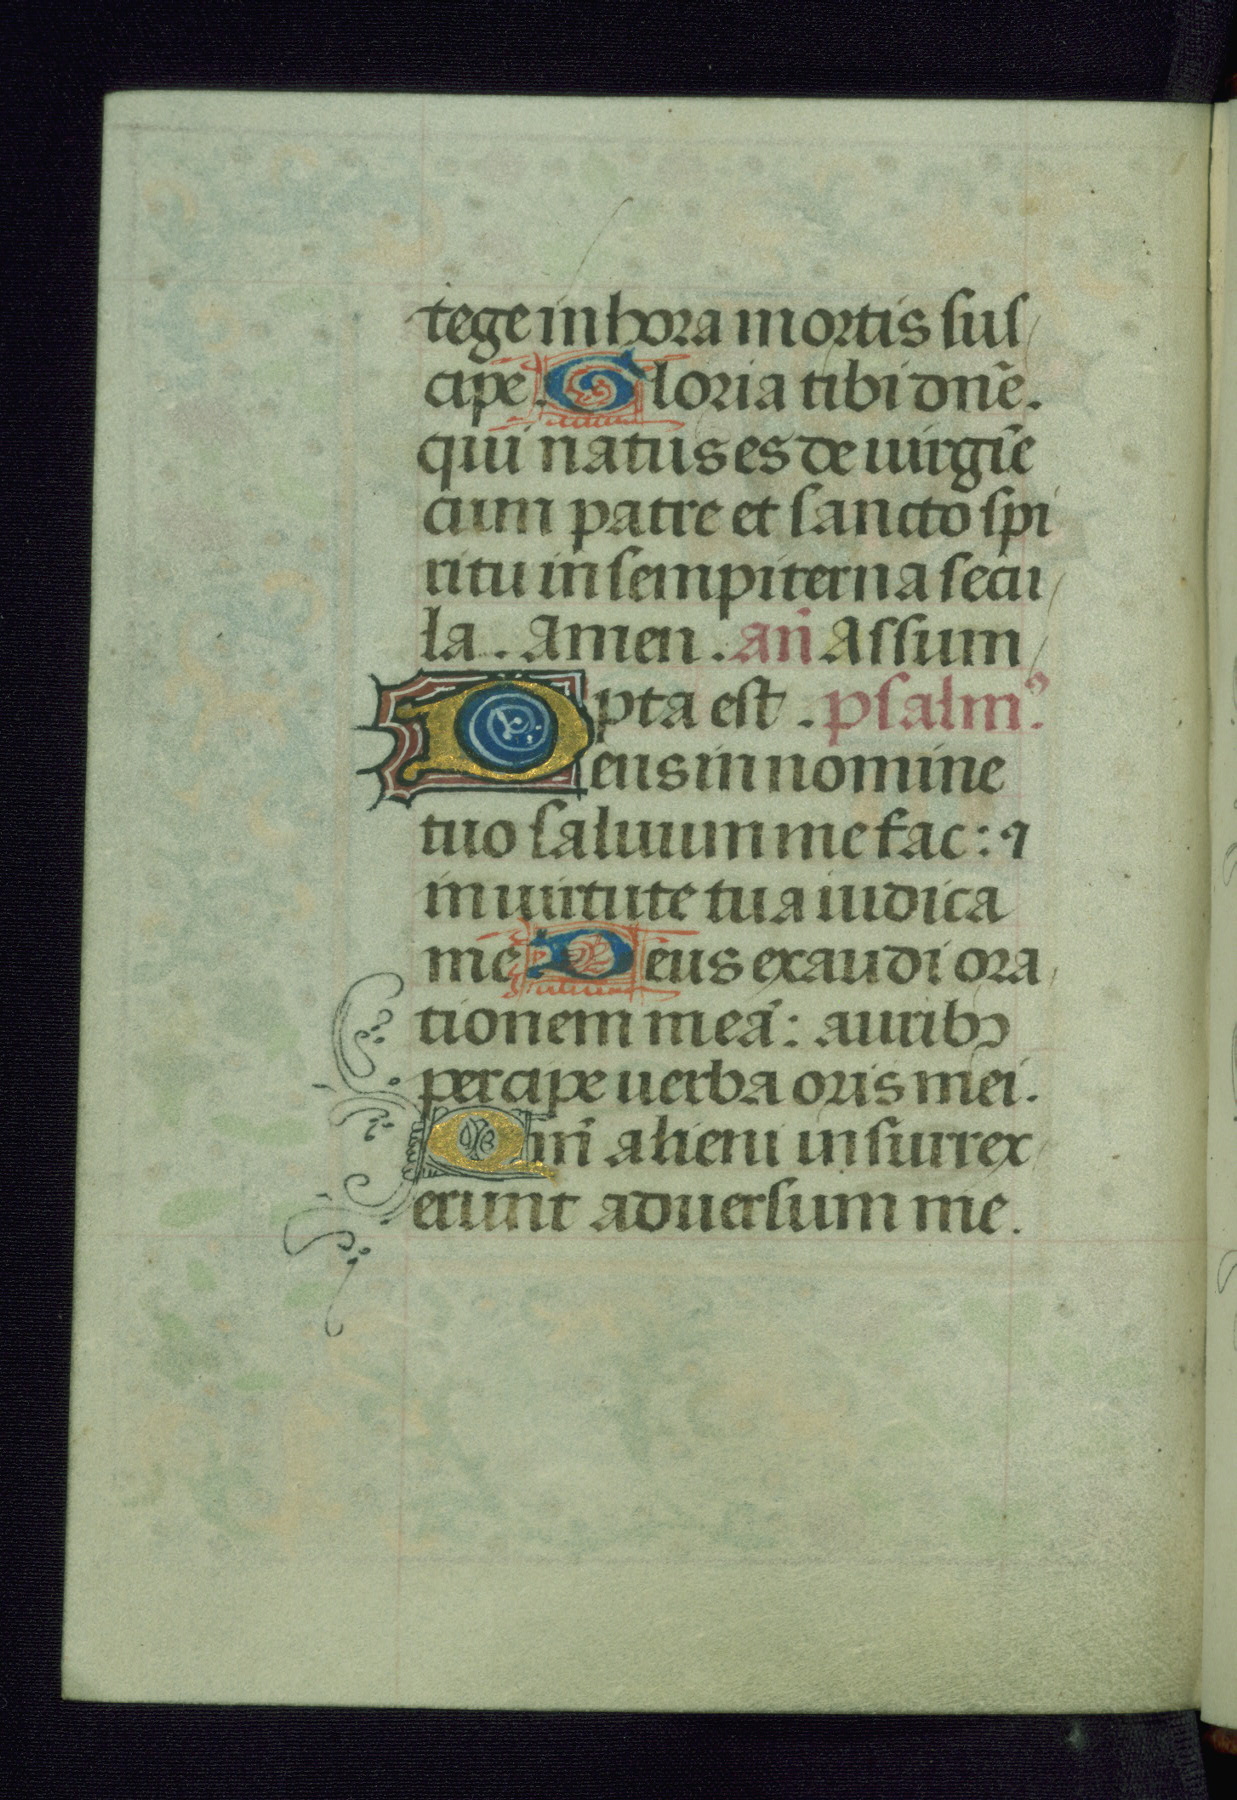 tege in hora mortis sus
cipe. Gloria tibi dnē.
qui natus es de uirgīe
cum patre et sancto spi
ritu in sempiterna secu
la. Amen. an̄ Assum
pta est. psalm⁹.
Deus in nomine
tuo saluum me fac: ⁊
in uirtute tua iudica
me Deus exaudi ora
tionem meā: aurib⁊
percipe uerba oris mei.
Qm̄ alieni insurrex
erunt aduersum me.